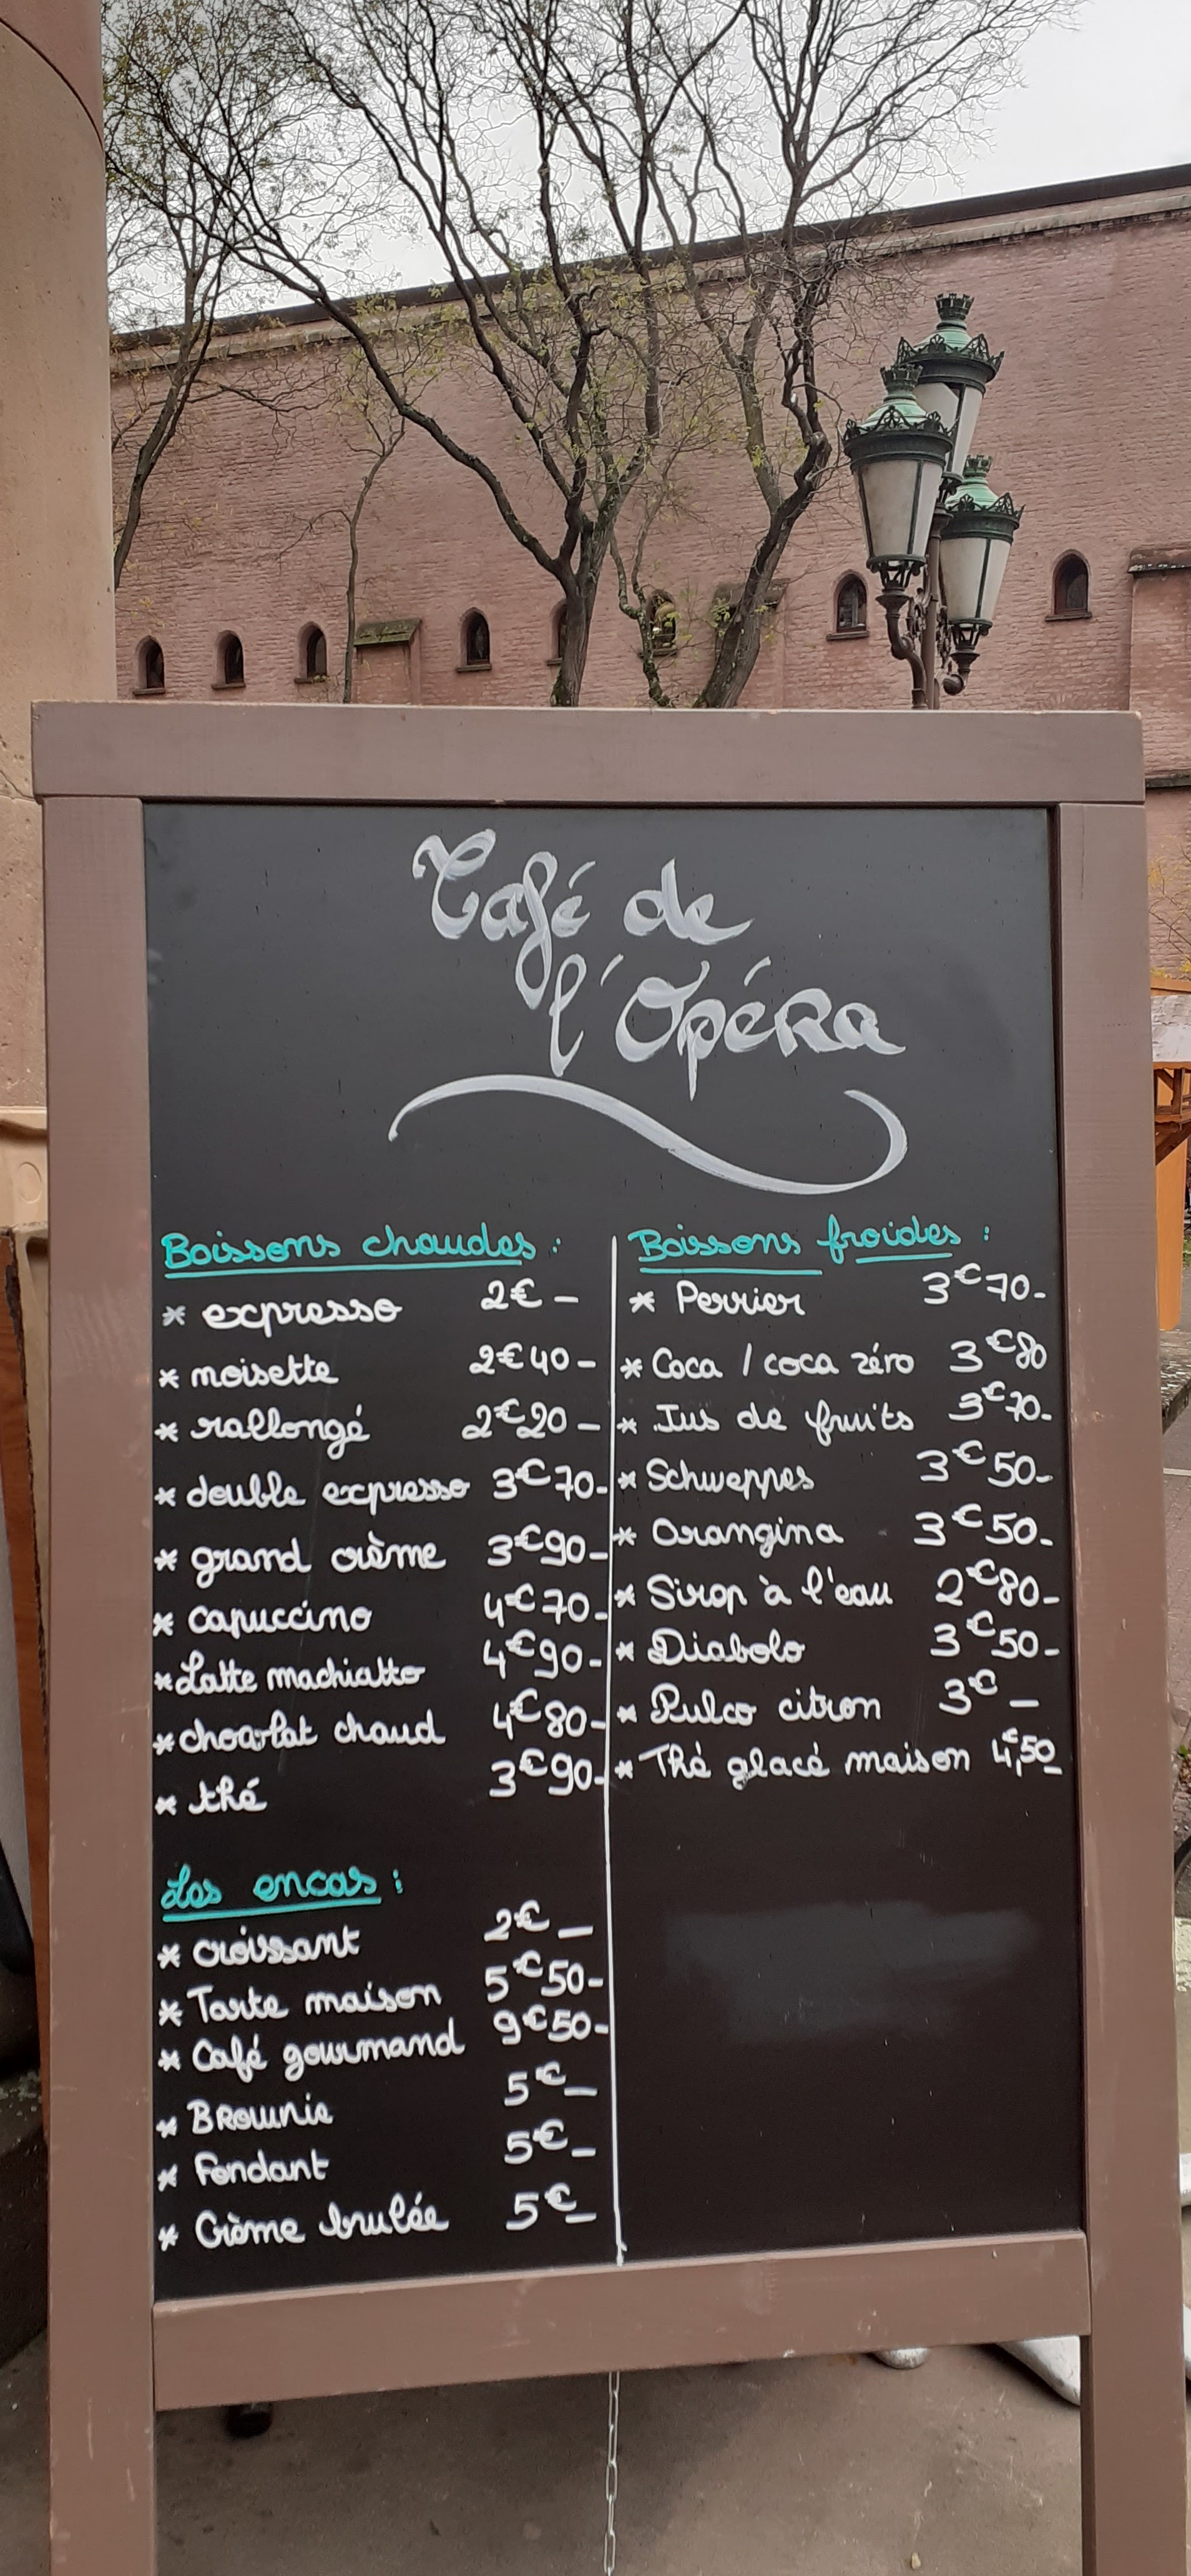 Café de
l'Opéra
Boissons chaudes :
* expresso 2€ -
* noisette 2€40 -
* rallongé 2€20 -
* double expresso 3€70 -
* grand crème 3€90 -
* capuccino 4€70 -
* Latte machiatto 4€90 -
* chocolat chaud 4€80 -
* thé 3€90 -
Les encas :
* croissant 2€ -
* Tarte maison 5€50 -
* Café gourmand 9€50 -
* Brownie 5€ -
* Fondant 5€ -
* Crème brulée 5€ -
Boissons froides :
* Perrier 3€70 -
* Coca / coca zéro 3€80
* Jus de fruits 3€70 -
* Schweppes 3€50 -
* Orangina 3€50 -
* Sirop à l'eau 2€80 -
* Diabolo 3€50 -
* Pulco citron 3€ -
* Thé glacé maison 4€,50 -